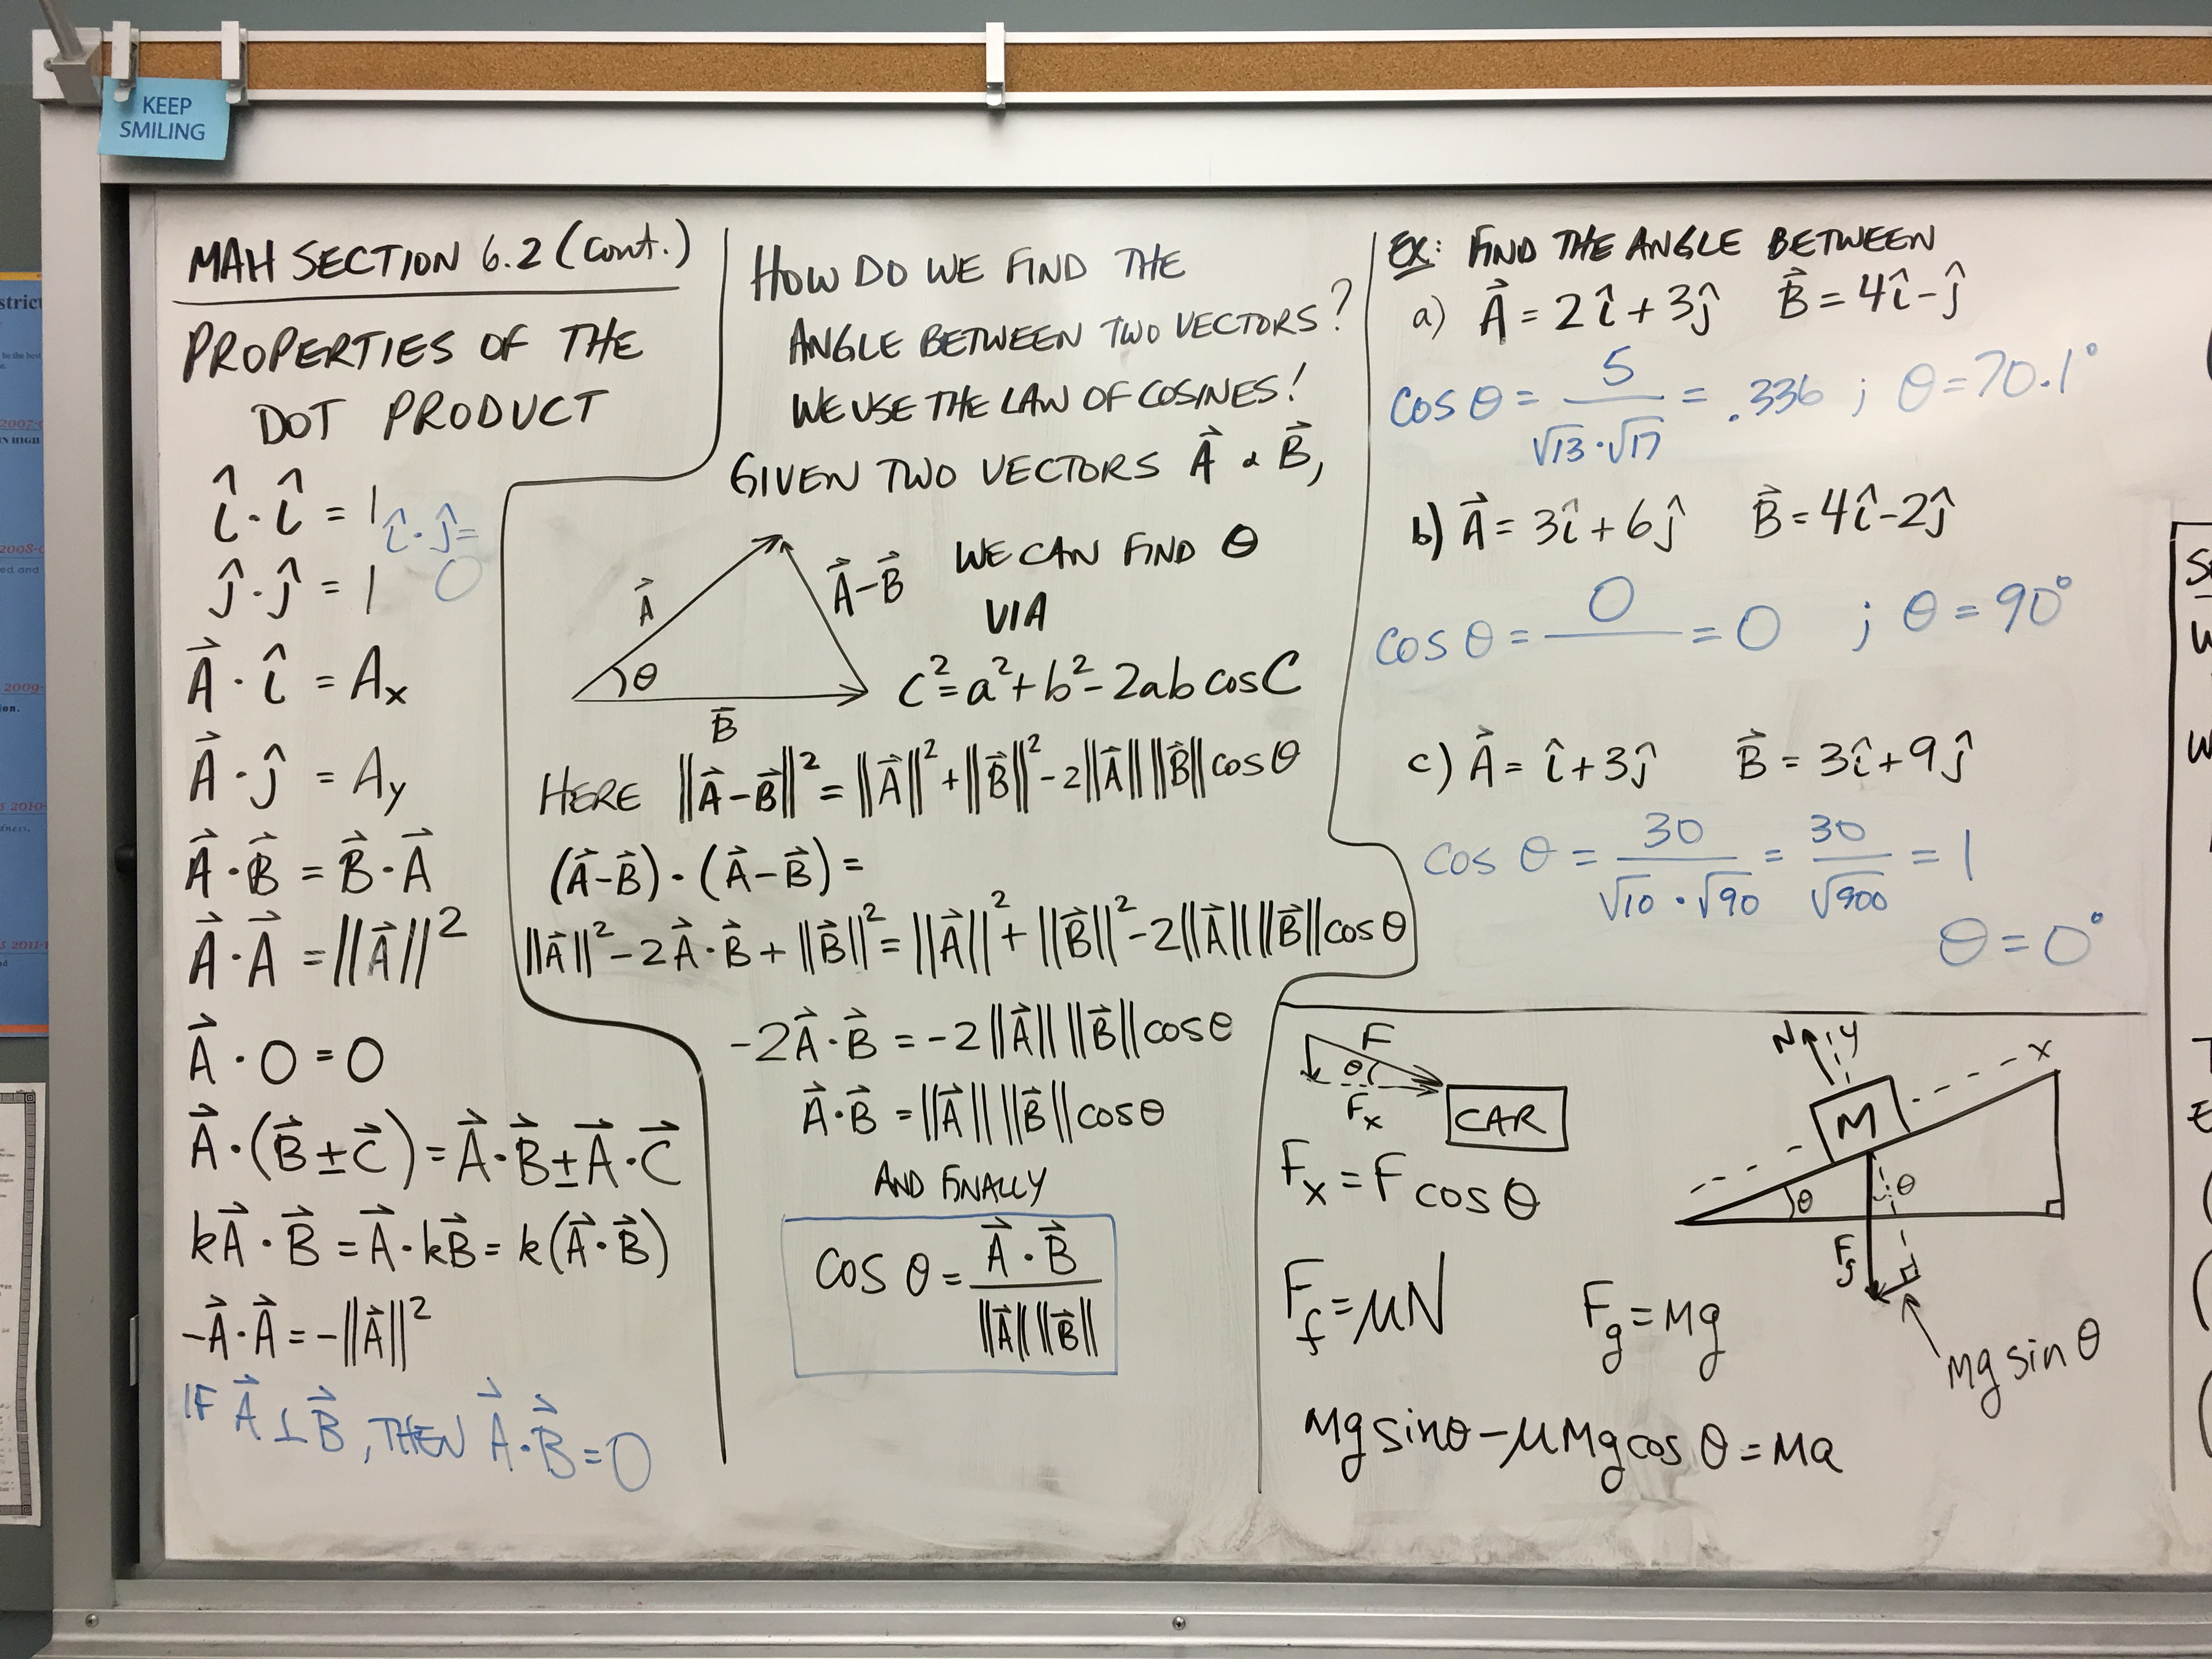 KEEP
SMILING
MAH SECTION 6.2 (Cont.)
PROPERTIES OF THE
DOT PRODUCT
î·î = 1
î·ĵ=
0
ĵ·ĵ = 1
A⃗·î = Aₓ
A⃗·ĵ = Aᵧ
A⃗·B⃗ = B⃗·A⃗
A⃗·A⃗ = ||A⃗||²
A⃗·0 = 0
A⃗·(B⃗±C⃗) = A⃗·B⃗±A⃗·C⃗
kA⃗·B⃗ = A⃗·kB⃗ = k(A⃗·B⃗)
-A⃗·A⃗ = -||A⃗||²
IF A⃗⊥B⃗, THEN A⃗·B⃗=0
HOW DO WE FIND THE
ANGLE BETWEEN TWO VECTORS?
WE USE THE LAW OF COSINES!
GIVEN TWO VECTORS A⃗ & B⃗,
A⃗
A⃗-B⃗
θ
B⃗
WE CAN FIND θ
VIA
c²=a²+b²-2ab cosC
HERE ||A⃗-B⃗||² = ||A⃗||²+||B⃗||²-2||A⃗|| ||B⃗||cosθ
(A⃗-B⃗)·(A⃗-B⃗) =
||A⃗||²-2A⃗·B⃗+||B⃗||² = ||A⃗||²+||B⃗||²-2||A⃗|| ||B⃗||cosθ
-2A⃗·B⃗ = -2||A⃗|| ||B⃗||cosθ
A⃗·B⃗ = ||A⃗|| ||B⃗||cosθ
AND FINALLY
cos θ = A⃗·B⃗ / ||A⃗|| ||B⃗||
EX: FIND THE ANGLE BETWEEN
a) A⃗ = 2î+3ĵ B⃗ = 4î-ĵ
cos θ = 5 / √13·√17 = .336 ; θ=70.1°
b) A⃗ = 3î+6ĵ B⃗ = 4î-2ĵ
cos θ = 0 / = 0 ; θ=90°
c) A⃗ = î+3ĵ B⃗ = 3î+9ĵ
cos θ = 30 / √10·√90 = 30 / √900 = 1
θ=0°
F
θ
Fₓ
CAR
Fₓ=F cosθ
N
y
x
M
θ
θ
Fg
mg sin θ
Ff=μN
Fg=Mg
Mg sinθ-μMg cos θ=Ma